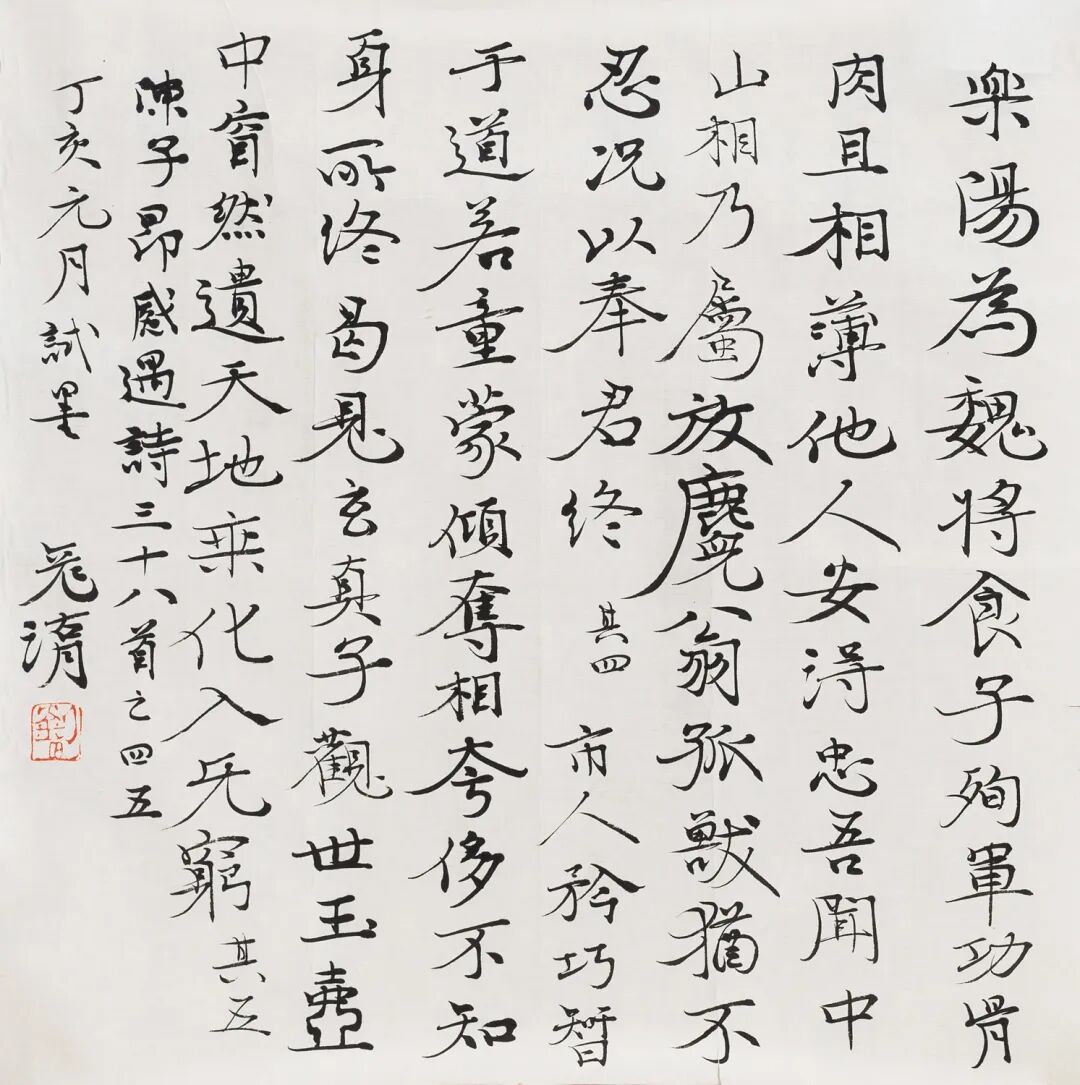 樂陽為魏將食子殉軍功骨
肉且相薄他人安得忠吾聞中
山相乃屬放麑翁孤獸猶不
忍况以奉君終 其四 市人矜巧智
于道若童蒙傾奪相夸侈不知
身所終曷見玄真子觀世玉壺
中窅然遺天地乘化入无窮 其五
陳子昂感遇詩三十八首之四五
丁亥元月試墨